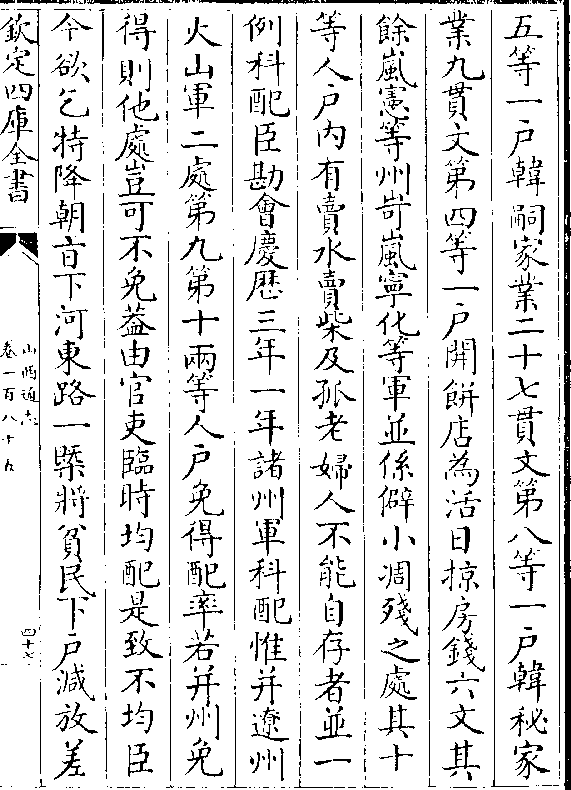 五等一戶韓嗣家業二十七貫文第八等一戶韓秘家
業九貫文第四等一戶開餅店為活日掠房錢六文其
餘嵐憲等州岢嵐寧化等軍並係僻小凋殘之處其十
等人戶內有賣水賣柴及孤老婦人不能自存者並一
例科配臣勘會慶厯三年一年諸州軍科配惟并遼州
火山軍二處第九第十兩等人戶免得配率若并州免
得則他處豈可不免葢由官吏臨時均配是致不均臣
今欲乞特降朝㫖下河東路一槩將貧民下戶減放差
欽定四庫全書
山西通志
卷一百八十五
四十六